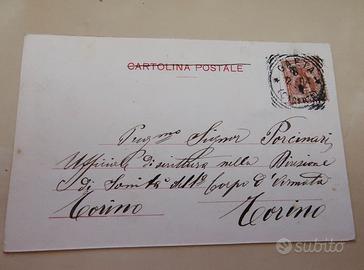 CARTOLINA POSTALE
GAETA
(CASERTA)
Preg.mo Signor Porcinari
Ufficiale di scrittura nella Direzione
di Sanità del I° Corpo d'Armata
Torino Torino
subito